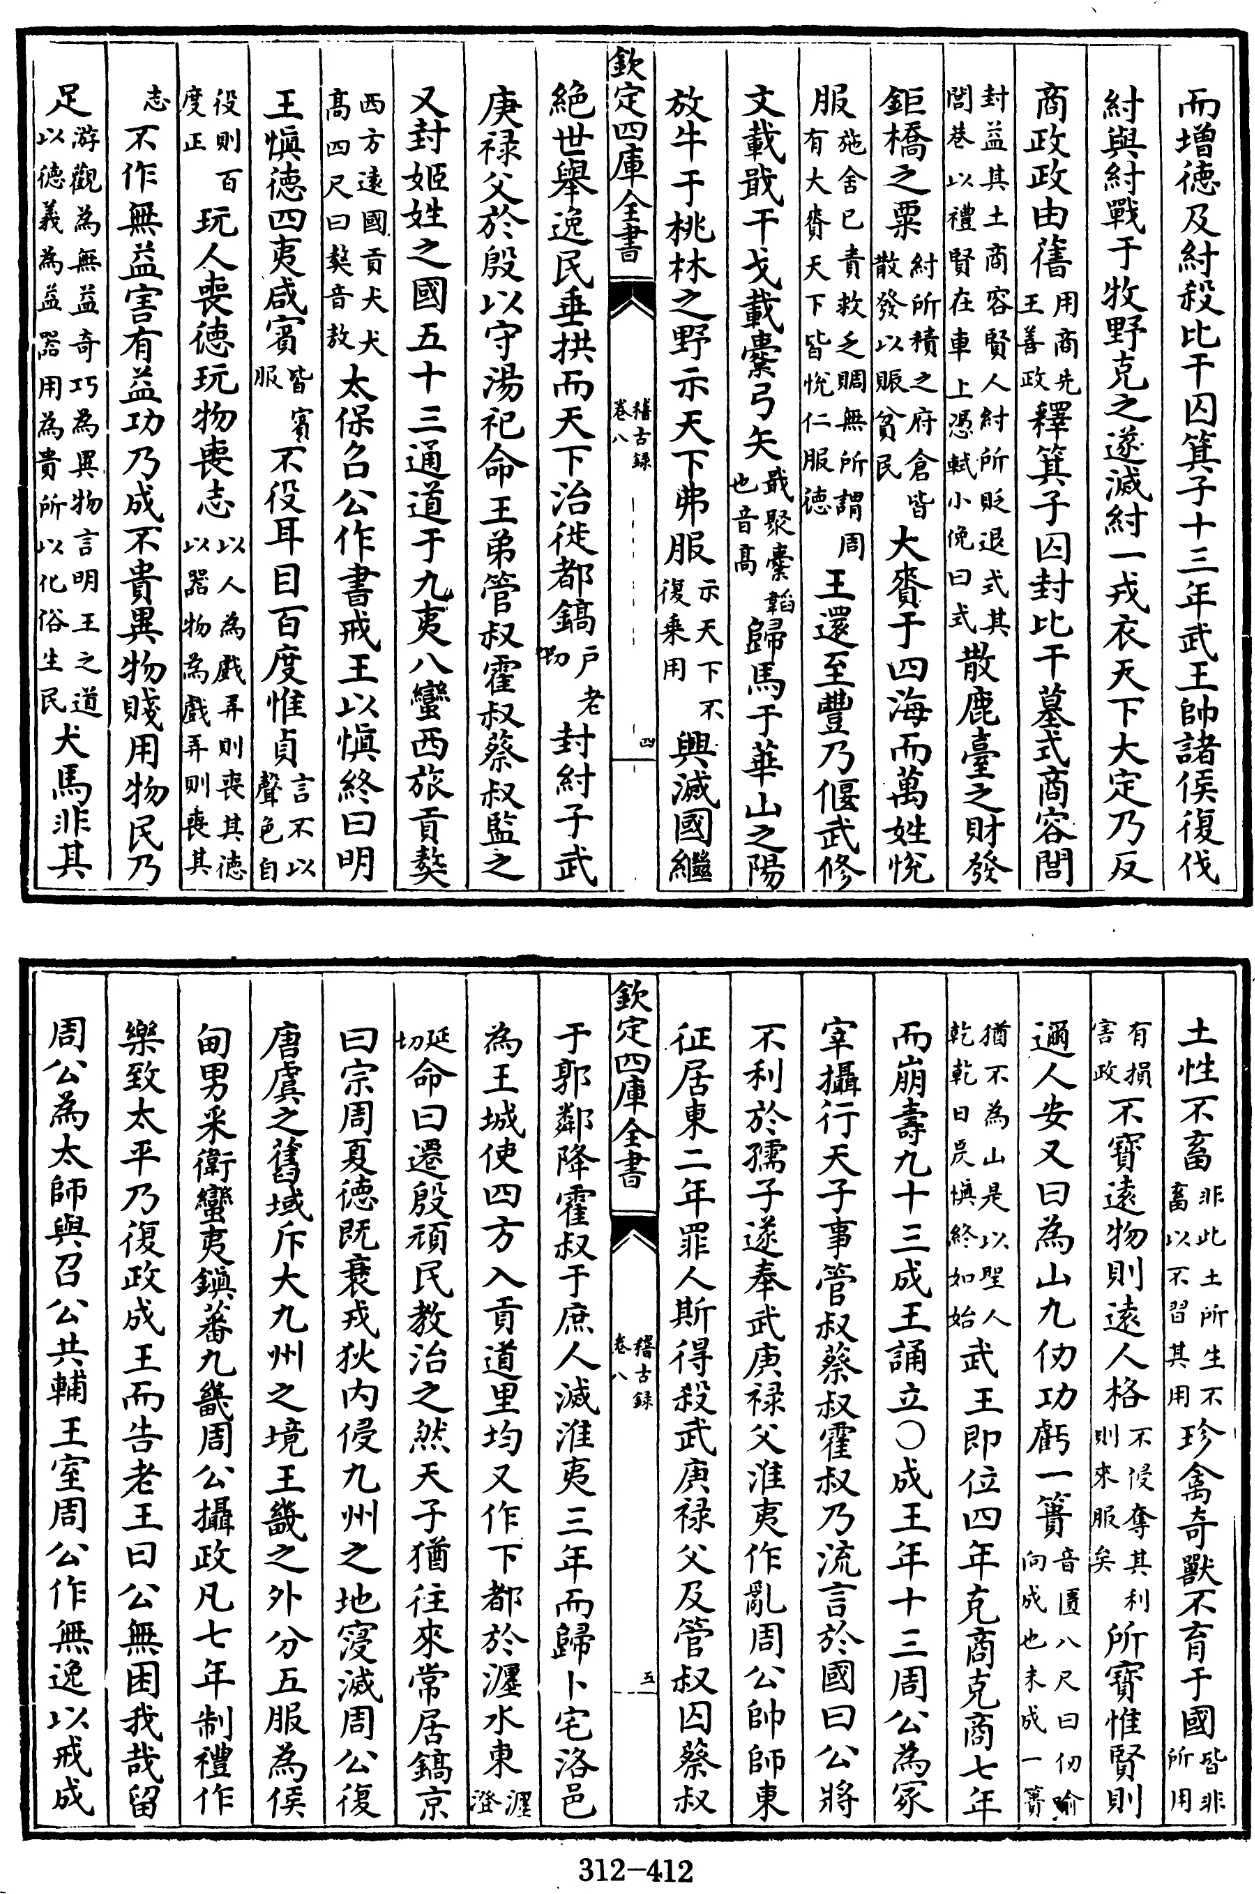 而增徳及紂殺比干囚箕子十三年武王帥諸侯復伐
紂與紂戰于牧野克之遂滅紂一戎衣天下大定乃反
商政政由舊用商先王善政釋箕子囚封比干墓式商容閭
封益其土商容賢人紂所貶退式其閭巷以禮賢在車上憑軾小俛曰式散鹿臺之財發
鉅橋之粟紂所積之府倉皆散發以賑貧民大賚于四海而萬姓悅
服施舍已責救乏賙無所謂周有大賚天下皆悅仁服徳王還至豐乃偃武修
文載戢干戈載櫜弓矢戢聚櫜韜也音高歸馬于華山之陽
放牛于桃林之野示天下弗服示天下不復乗用興滅國繼
欽定四庫全書
稽古録
卷八
四
絶世舉逸民垂拱而天下治徙都鎬戶老切封紂子武
庚禄父於殷以守湯祀命王弟管叔霍叔蔡叔監之
又封姬姓之國五十三通道于九夷八蠻西旅貢獒
西方遠國貢犬犬高四尺曰獒音敖太保召公作書戒王以慎終曰明
王慎徳四夷咸賓皆賓服不役耳目百度惟貞言不以聲色自
役則百度正玩人喪徳玩物喪志以人為戲弄則喪其徳以器物為戲弄則喪其
志不作無益害有益功乃成不貴異物賤用物民乃
足游觀為無益奇巧為異物言明王之道以徳義為益器用為貴所以化俗生民犬馬非其
土性不畜非此土所生不畜以不習其用珍禽奇獸不育于國皆非所用
有損害政不寳遠物則遠人格不侵奪其利則來服矣所寳惟賢則
邇人安又曰為山九仞功虧一簣音匱八尺曰仞喻向成也未成一簣
猶不為山是以聖人乾乾日昃慎終如始武王即位四年克商克商七年
而崩壽九十三成王誦立〇成王年十三周公為冡
宰攝行天子事管叔蔡叔霍叔乃流言於國曰公將
不利於孺子遂奉武庚禄父淮夷作亂周公帥師東
征居東二年罪人斯得殺武庚禄父及管叔囚蔡叔
欽定四庫全書
稽古録
卷八
五
于郭鄰降霍叔于庶人滅淮夷三年而歸卜宅洛邑
為王城使四方入貢道里均又作下都於瀍水東瀍澄
延切命曰遷殷頑民教治之然天子猶往來常居鎬京
曰宗周夏徳既衰戎狄内侵九州之地寖滅周公復
唐虞之舊域斥大九州之境王畿之外分五服為侯
甸男采衛蠻夷鎮蕃九畿周公攝政凡七年制禮作
樂致太平乃復政成王而告老王曰公無困我哉留
周公為太師與召公共輔王室周公作無逸以戒成
312-412